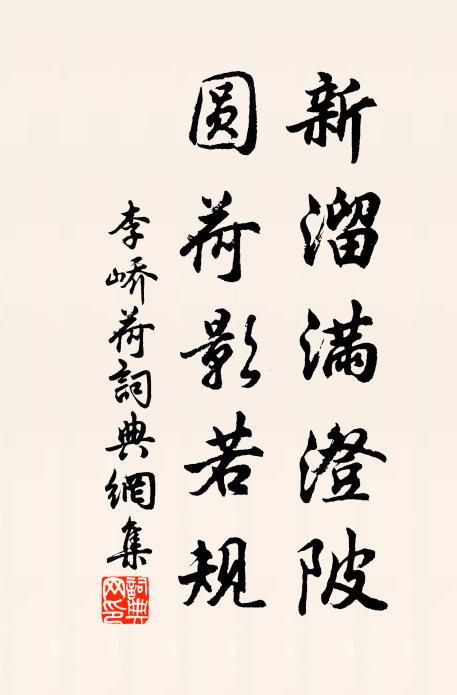 新溜满澄陂
圆荷影若规
李峤荷詞典網集
詞典网印